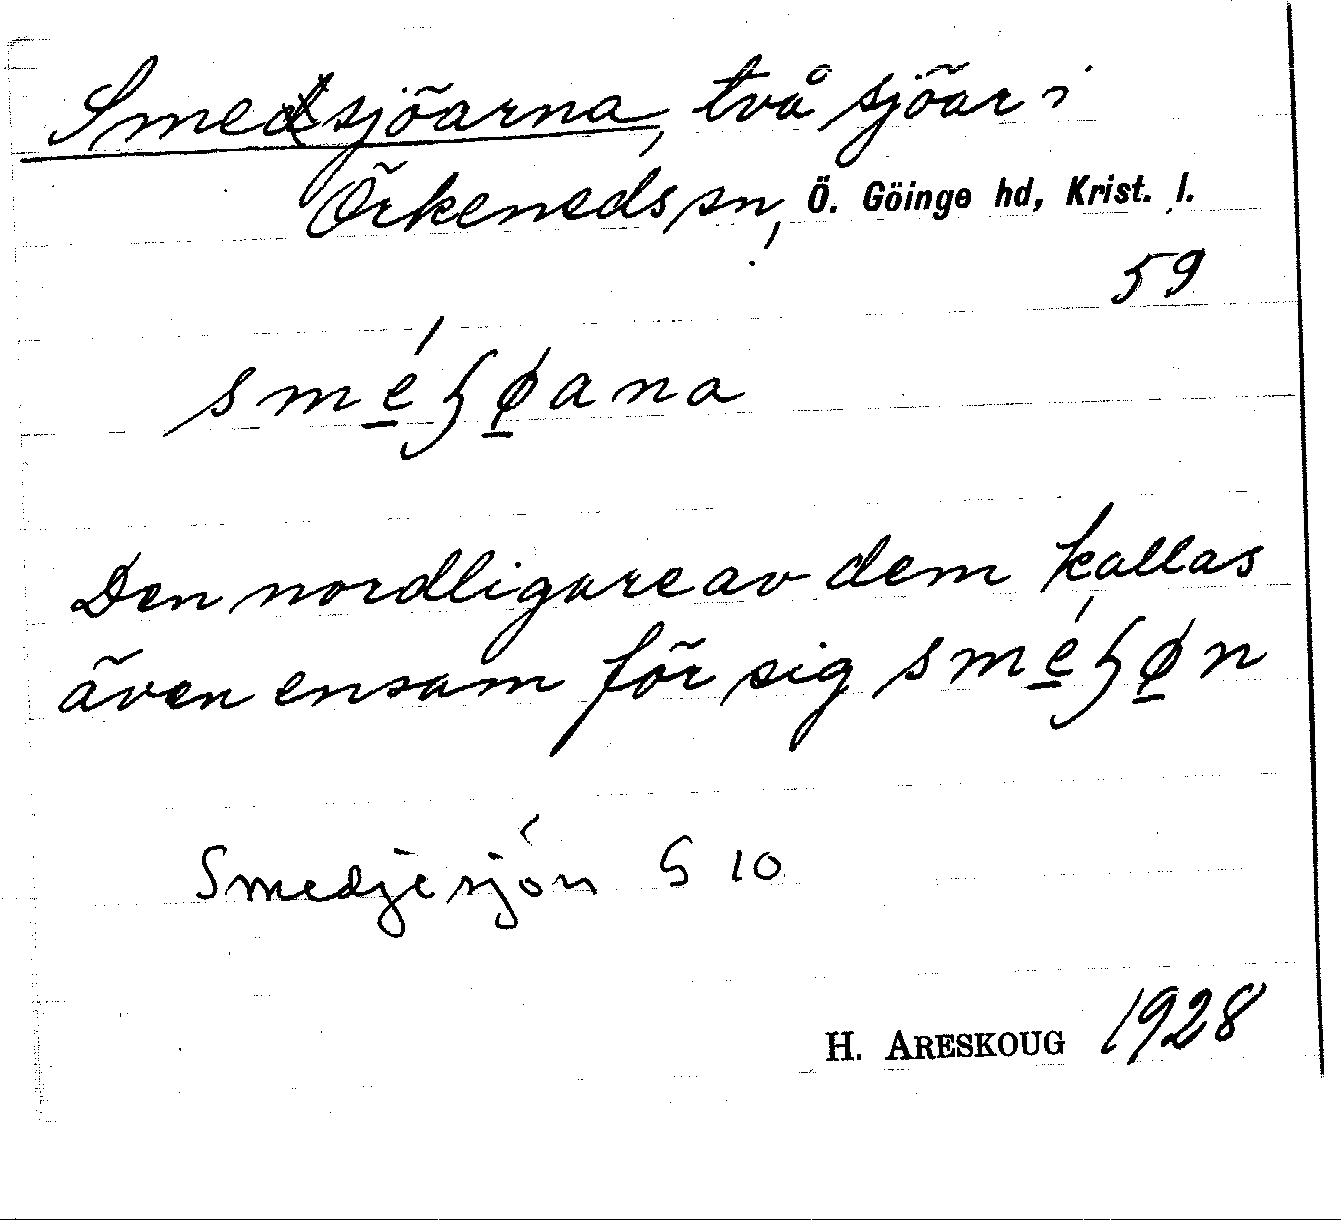 Smedsjöarna, två sjöar i
Örkeneds sn, Ö. Göinge hd, Krist. l.
59
Den nordligare av dem kallas
även ensam för sig
Smedjesjön G 10
H. ARESKOUG 1928